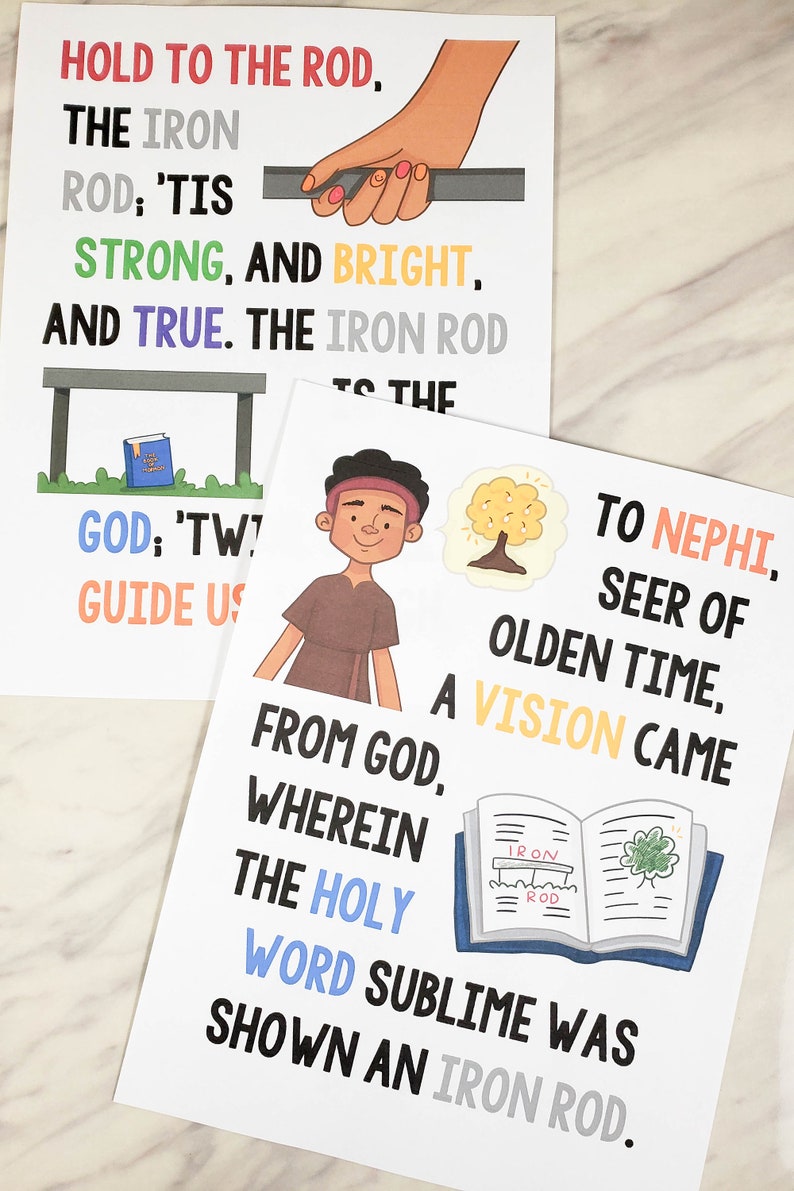 HOLD TO THE ROD,
THE IRON
ROD; 'TIS
STRONG, AND BRIGHT,
AND TRUE. THE IRON ROD
IS THE
THE BOOK OF MORMON
GOD; 'TWI
GUIDE US
TO NEPHI,
SEER OF
OLDEN TIME,
A VISION CAME
FROM GOD,
WHEREIN
THE HOLY
WORD SUBLIME WAS
SHOWN AN IRON ROD.
IRON
ROD